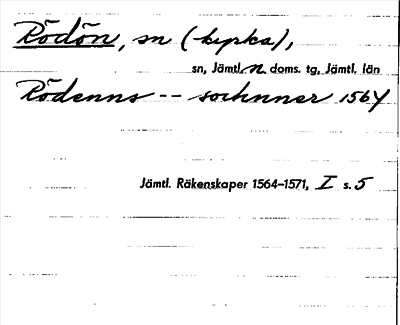 Rödön, sn (kyrka),
sn, Jämtl. n. doms. tg, Jämtl. län
Rödenns -- sochnner 1564
Jämtl. Räkenskaper 1564–1571, I s. 5